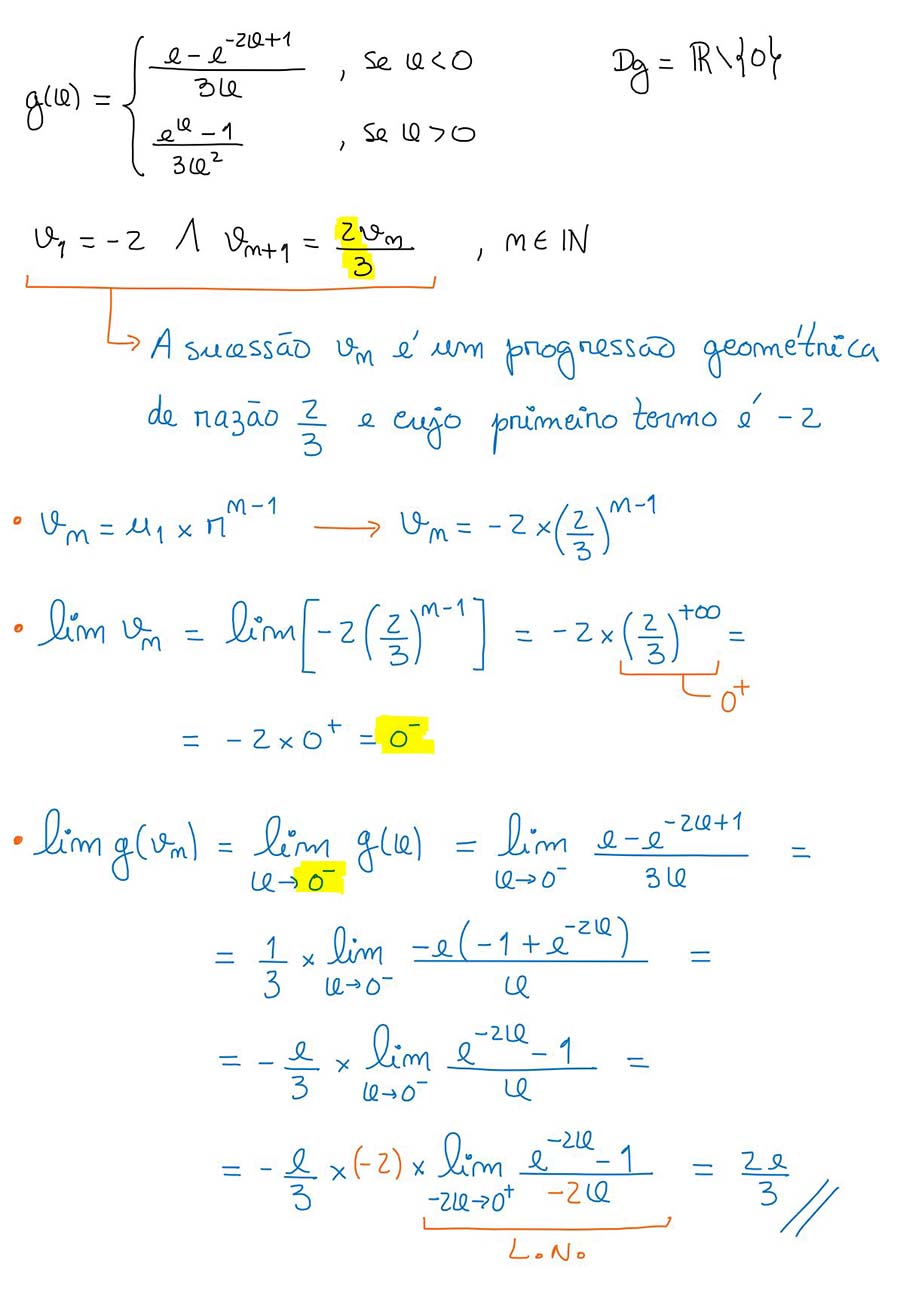 g(x) = { (e - e^(-2x+1))/(3x) , se x < 0    Dg = ℝ\{0}
(e^x - 1)/(3x²) , se x > 0
v₁ = -2 ∧ vₙ₊₁ = 2vₙ/3 , n ∈ IN
A sucessão vₙ é um progressão geométrica
de razão 2/3 e cujo primeiro termo é -2
• vₙ = u₁ × r^(n-1) → vₙ = -2 × (2/3)^(n-1)
• lim vₙ = lim [-2(2/3)^(n-1)] = -2 × (2/3)^(+∞) =
0⁺
= -2 × 0⁺ = 0⁻
• lim g(vₙ) = lim_(x→0⁻) g(x) = lim_(x→0⁻) (e - e^(-2x+1))/(3x) =
= 1/3 × lim_(x→0⁻) (-e(-1 + e^(-2x)))/x =
= - e/3 × lim_(x→0⁻) (e^(-2x) - 1)/x =
= - e/3 × (-2) × lim_(-2x→0⁺) (e^(-2x) - 1)/(-2x) = 2e/3 //
L.N.